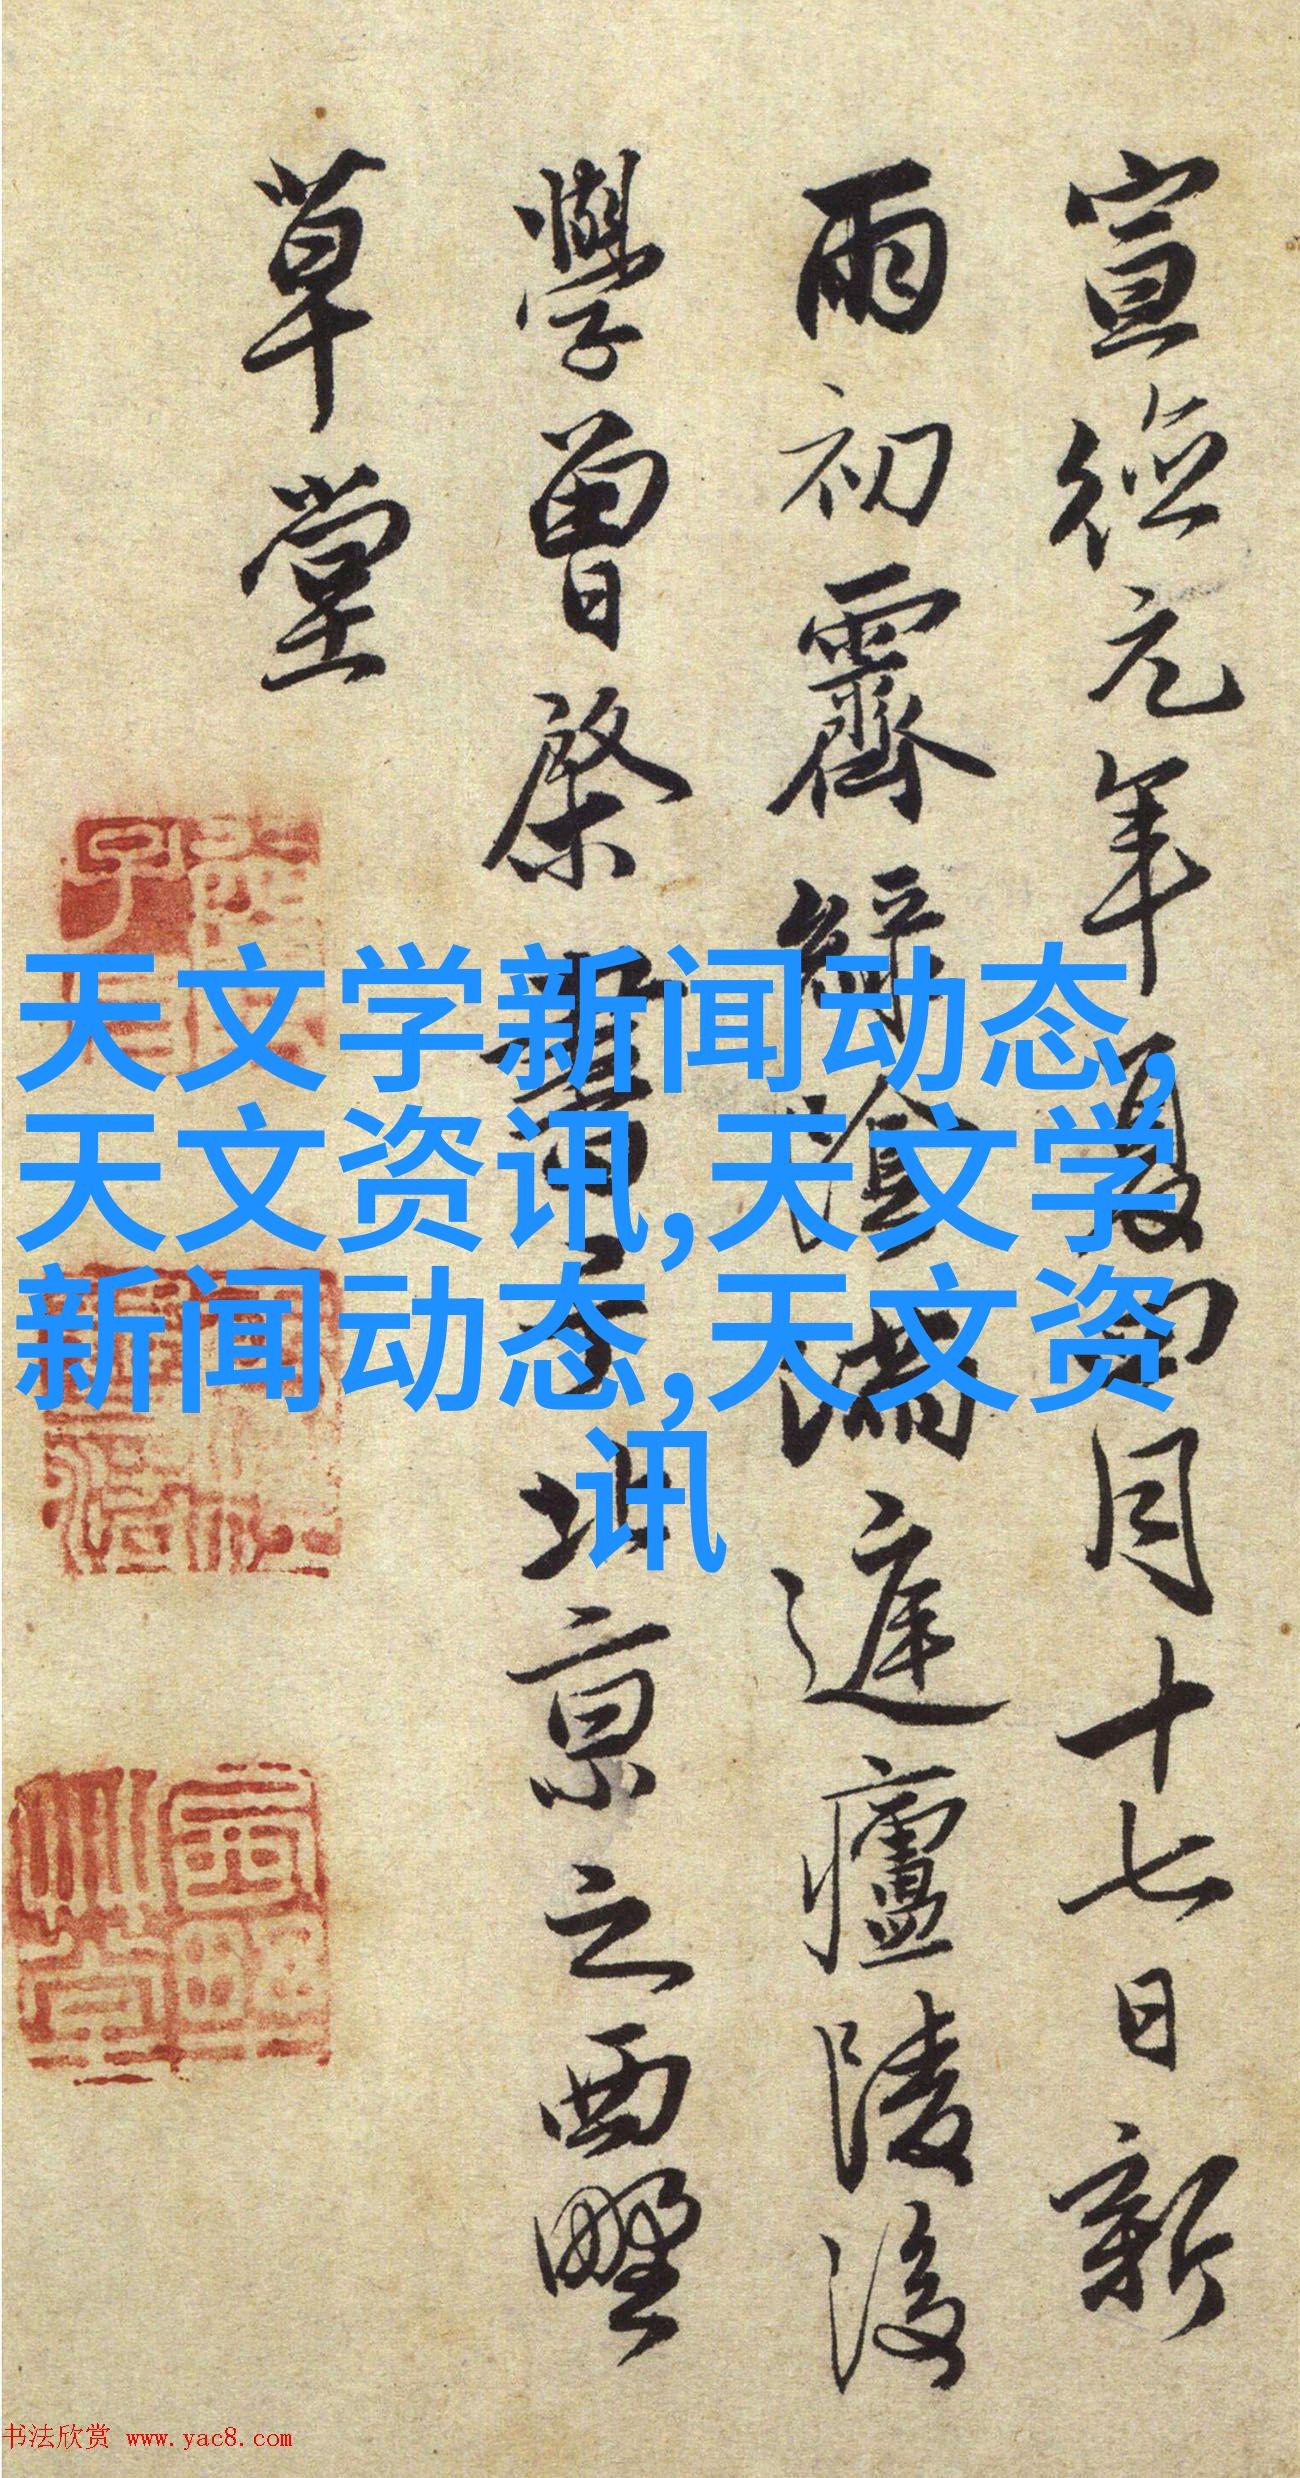 宣德元年夏四月十七日新
雨初霽綠陰滿庭廬陵後
學曾棨書于北京之西墅
草堂
天文学新闻动态,
天文资讯,天文学
新闻动态,天文资
讯
书法欣赏 www.yac8.com